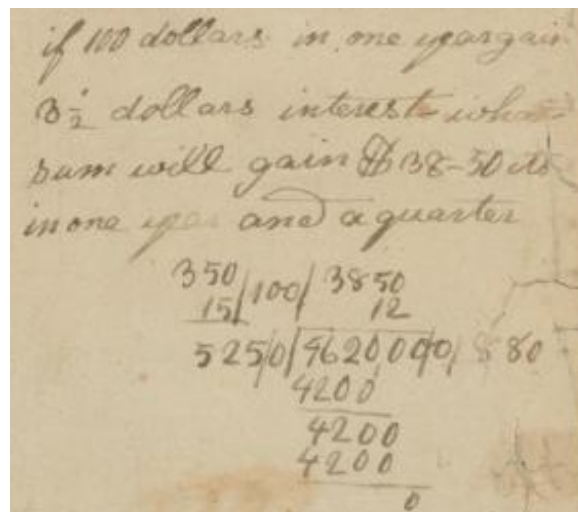 if 100 dollars in one year gain
3½ dollars interest what
sum will gain $38-50 cts
in one year and a quarter
350/100/3850
15/ 12
5250/4620000/880
4200
4200
4200
0